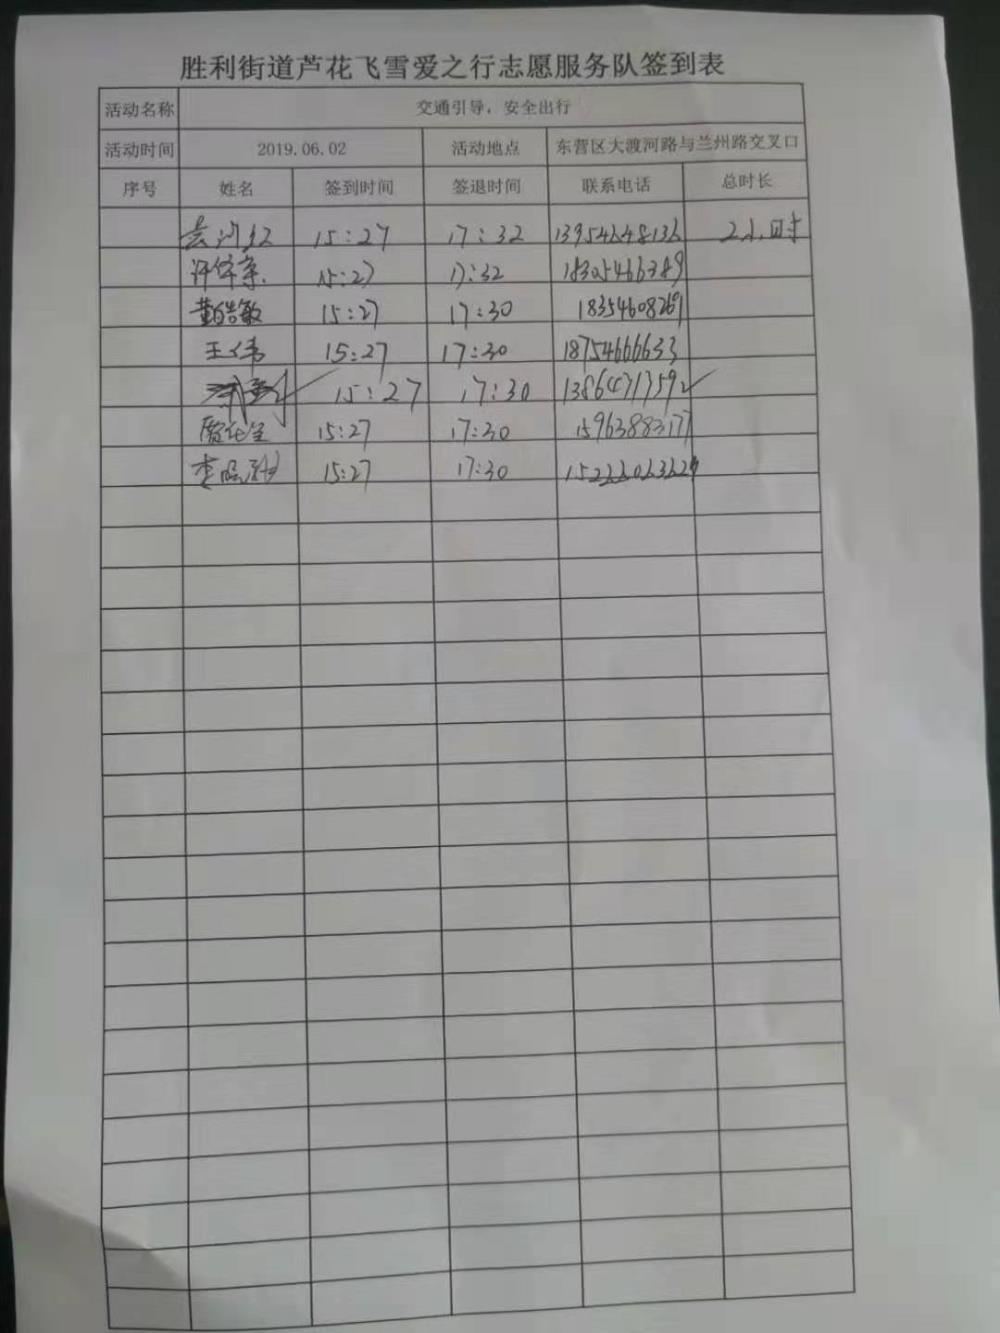 胜利街道芦花飞雪爱之行志愿服务队签到表
活动名称 交通引导，安全出行
活动时间 2019.06.02 活动地点 东营区大渡河路与兰州路交叉口
序号 姓名 签到时间 签退时间 联系电话 总时长
15:27 17:32 13954648136 2小时
15:27 17:32 18305466389
董皓敏 15:27 17:30 18354608269
王伟 15:27 17:30 18754666633
15:27 17:30 13864717592
15:27 17:30 15963883177
15:27 17:30